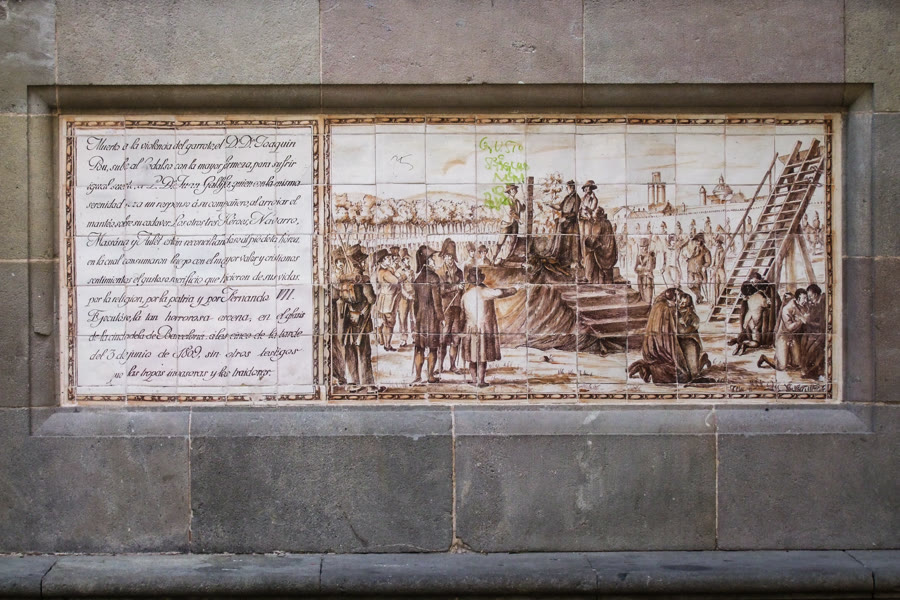 Muerto a la violencia del garrote el D. D. Joaquin
Pou, sube al Cadalso con la mayor firmeza, para sufrir
igual suerte el P. D. Juan Gallifa, quien con la misma
serenidad reza un responso á su compañero, al arrojar el
manteo sobre su cadaver. Los otros tres Héroes, Navarro,
Massana y Aulet están reconciliandose al pie de la horca,
en la cual consumaron luego con el mayor valor y cristianos
sentimientos el gustoso sacrificio, que hicieron de sus vidas
por la religion, por la patria y por Fernando VII.
Ejecutóse la tan horrorosa arcena, en el glasis
de la ciudadela de Barcelona, á las cinco de la tarde
del 3 de junio de 1809, sin otros testigos
que las tropas invasoras y los traidores.